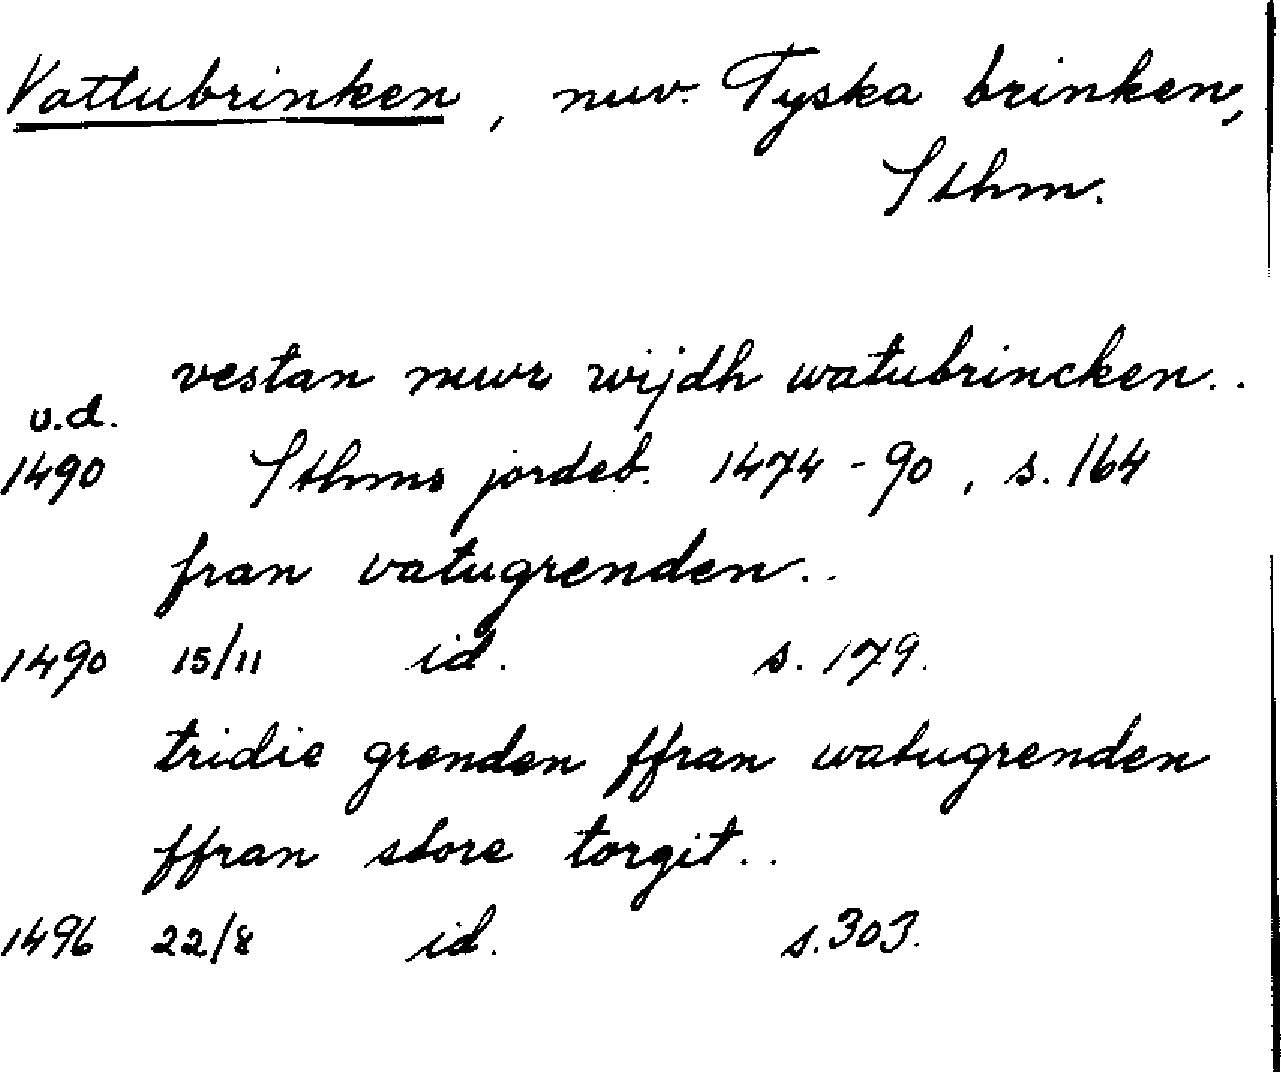 Vattubrinken, nuv. Tyska brinken,
Sthm.
vestan mwr wijdh watubrincken..
u.d.
1490 Sthms jordeb. 1474-90, s. 164
fran vatugrenden..
1490 15/11 id. s. 179.
tridie grenden ffran watugrenden
ffran store torgit..
1496 22/8 id. s. 303.